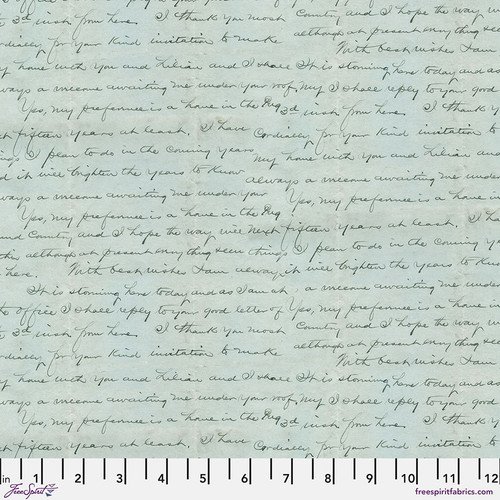 3rd inst from here. I thank you most Country, and I hope the way w
ordially, for your kind invitation to make although at present every thing see
With best wishes I am
y home with you and Lilian and I shall It is storming here today and a
ways a welcome awaiting me under your roof, my I shall reply to your good
Yes, my preference is a home in the 3rd inst from here. I thank y
t fifteen years at least. I have Cordially, for your kind invitation to
ings I plan to do in the coming years my home with you and Lilian and
d it will brighten the years to know always a welcome awaiting me under
ways a welcome awaiting me under your Yes, my preference is a home in
Yes, my preference is a home in the next fifteen years at least. I
nd Country, and I hope the way will things I plan to do in the coming y
although at present every thing see it will brighten the years to know
here. With best wishes I am always a welcome awaiting me under
It is storming here today and as I am at Yes, my preference is a home in
e office I shall reply to your good letter of Country, and I hope the way w
3rd inst from here. I thank you most although at present every thing see
ordially, for your kind invitation to make With best wishes I am
y home with you and Lilian and I shall It is storming here today and a
ways a welcome awaiting me under your roof, my I shall reply to your good
Yes, my preference is a home in the 3rd inst from here. I thank y
t fifteen years at least. I have Cordially, for your kind invitation to
in 1 2 3 4 5 6 7 8 9 10 11 12
FreeSpirit freespiritfabrics.com